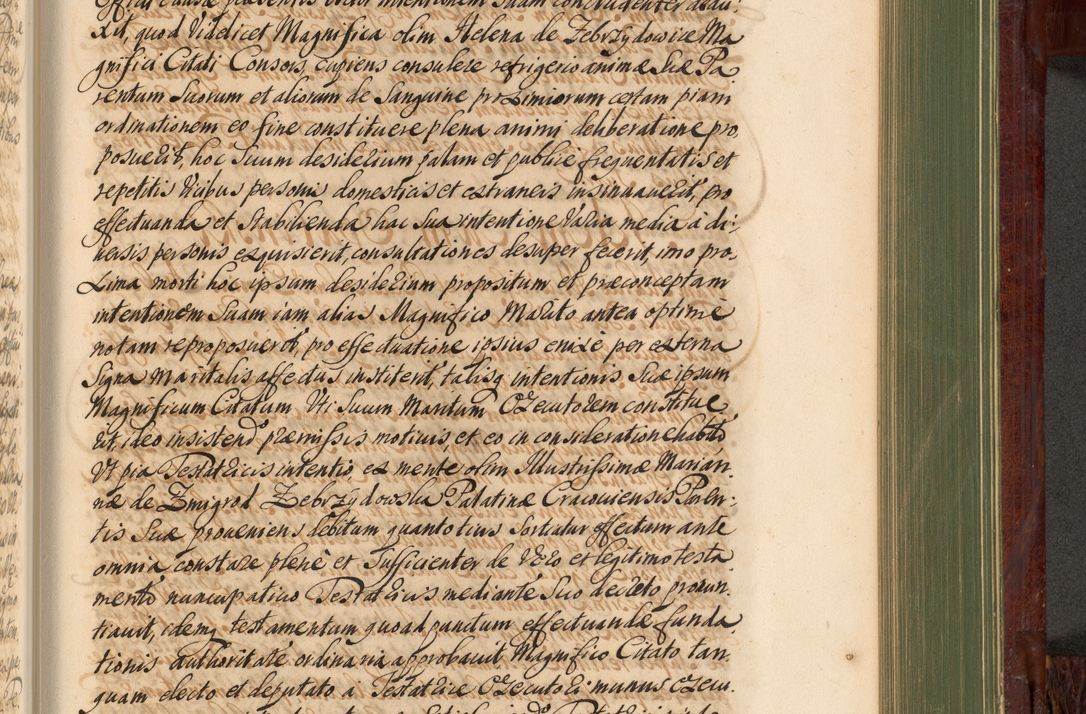 Officii causæ præsentis Actor intentionem suam concludenter addu-
xit, quod Videlicet Magnifica olim Helena de Zebrzydowice Ma
gnifici Citati Consors, cupiens consulere refrigerio animæ suæ Pa
rentum suorum et aliorum de Sanguine proximiorum certam piam
ordinationem eo fine constituere plena animi deliberatione pro
posuerit, hoc suum desiderium palam et publicè frequentatis et
repetitis Vicibus personis domesticis et extraneis insinuaverit, pro
effectuanda et Stabilienda hac sua intentione Varia media à di-
uersis personis exquisierit, consultationes desuper fecerit, imo pro-
xima morti hoc ipsum desiderium propositum et præconceptam
intentionem suam iam alias Magnifico Marito antea optimè
notam reproposuerit, pro effectuatione ipsius enixè per externa
Signa Maritalis affectus institerit, talisq intentionis suæ ipsum
Magnificum Citatum Vti suum Maritum Executorem constitue
rit, ideo insistendo præmissis motiuis, et eo in consideratione habito
Vt pia Testatricis intentio, ex mente olim Illustrissimæ Marian-
næ de Zmigrod Zebrzydowska Palatinæ Cracouiensis Paren-
tis suæ proueniens debitum quantotius sortiatur effectum ante
omnia constare plenè et Sufficienter de Vero et legitimo testa
mento nuncupatiuo Testatricis mediante suo decreto pronun-
tiauit, idemq testamentum quoad punctum effectuandæ funda
tionis authoritate ordinaria approbauit Magnifico Citato tan
quam electo et deputato à Testatrice Executori munus Execu-